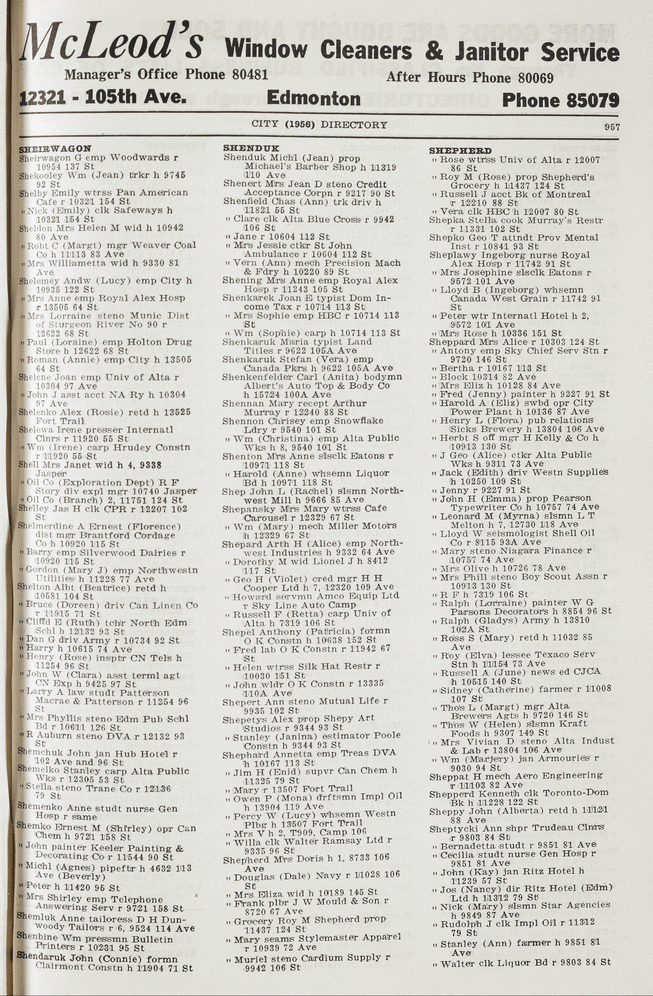 McLeod's Window Cleaners & Janitor Service
Manager's Office Phone 80481 After Hours Phone 80069
12321 - 105th Ave. Edmonton Phone 85079
CITY (1956) DIRECTORY 957
SHEIRWAGON
Sheirwagon G emp Woodwards r
10954 137 St
Shekooley Wm (Jean) trkr h 9745
92 St
Shelby Emily wtrss Pan American
Cafe r 10321 154 St
" Nick (Emily) clk Safeways h
10321 154 St
Sheldon Mrs Helen M wid h 10942
80 Ave
" Robt C (Margt) mgr Weaver Coal
Co h 11113 83 Ave
" Mrs Williametta wid h 9330 81
Ave
Shelemey Andw (Lucy) emp City h
10935 122 St
" Mrs Anne emp Royal Alex Hosp
r 13505 64 St
" Mrs Lorraine steno Munic Dist
of Sturgeon River No 90 r
12622 68 St
" Paul (Loraine) emp Holton Drug
Store h 12622 68 St
" Roman (Annie) emp City h 13505
64 St
Shelene Joan emp Univ of Alta r
10304 97 Ave
" John J asst acct NA Ry h 10304
97 Ave
Shelenko Alex (Rosie) retd h 13525
Fort Trail
Shelewa Irene presser Internatl
Clnrs r 11920 55 St
" Wm (Irene) carp Hrudey Constn
r 11920 55 St
Shell Mrs Janet wid h 4, 9338
Jasper
" Oil Co (Exploration Dept) R F
Story div expl mgr 10740 Jasper
" Oil Co (Branch) 2, 11751 124 St
Shelley Jas H clk CPR r 12207 102
St
Shelmerdine A Ernest (Florence)
dist mgr Brantford Cordage
Co h 10920 115 St
" Barry emp Silverwood Dairies r
10920 115 St
" Gordon (Mary J) emp Northwestn
Utilities h 11228 77 Ave
Shelton Albt (Beatrice) retd h
10581 104 St
" Bruce (Doreen) driv Can Linen Co
r 11915 71 St
" Cliffd E (Ruth) tchr North Edm
Schl h 12132 93 St
" Dan G driv Army r 10734 92 St
" Harry h 10615 74 Ave
" Henry (Rose) insptr CN Tels h
11254 96 St
" John W (Clara) asst terml agt
CN Exp h 9425 97 St
" Larry A law studt Patterson
Macrae & Patterson r 11254 96
St
" Mrs Phyllis steno Edm Pub Schl
Bd r 10611 126 St
" R Auburn steno DVA r 12132 93
St
Shemchuk John jan Hub Hotel r
102 Ave and 96 St
Shemelko Stanley carp Alta Public
Wks r 12305 53 St
" Stella steno Trane Co r 12136
79 St
Shemenko Anne studt nurse Gen
Hosp r same
Shemko Ernest M (Shirley) opr Can
Chem h 9721 158 St
" John painter Keeler Painting &
Decorating Co r 11544 90 St
" Michl (Agnes) pipeftr h 4632 113
Ave (Beverly)
" Peter h 11420 95 St
" Mrs Shirley emp Telephone
Answering Serv r 9721 158 St
Shemluk Anne tailoress D H Dun-
woody Tailors r 6, 9524 114 Ave
Shenbine Wm pressmn Bulletin
Printers r 10231 95 St
Shendaruk John (Connie) formn
Clairmont Constn h 11904 71 St
SHENDUK
Shenduk Michl (Jean) prop
Michael's Barber Shop h 11319
110 Ave
Shenert Mrs Jean D steno Credit
Acceptance Corpn r 9217 90 St
Shenfield Chas (Ann) trk driv h
11821 55 St
" Clare clk Alta Blue Cross r 9942
106 St
" Jane r 10604 112 St
" Mrs Jessie ctkr St John
Ambulance r 10604 112 St
" Vern (Ann) mech Precision Mach
& Fdry h 10220 89 St
Shening Mrs Anne emp Royal Alex
Hosp r 11243 105 St
Shenkarek Joan E typist Dom In-
come Tax r 10714 113 St
" Mrs Sophie emp HBC r 10714 113
St
" Wm (Sophie) carp h 10714 113 St
Shenkaruk Maria typist Land
Titles r 9622 105A Ave
Shenkaruk Stefan (Vera) emp
Canada Pkrs h 9622 105A Ave
Shenkenfelder Carl (Anita) bodymn
Albert's Auto Top & Body Co
h 15724 100A Ave
Shennan Mary recept Arthur
Murray r 12240 88 St
Shennon Chrisey emp Snowflake
Ldry r 9540 101 St
" Wm (Christina) emp Alta Public
Wks h 8, 9540 101 St
Shenton Mrs Anne slsclk Eatons r
10971 118 St
" Harold (Anne) whsemn Liquor
Bd h 10971 118 St
Shep John L (Rachel) slsmn North-
west Mill h 9666 85 Ave
Shepansky Mrs Mary wtrss Cafe
Carousel r 12329 67 St
" Wm (Mary) mech Miller Motors
h 12329 67 St
Shepard Arth H (Alice) emp North-
west Industries h 9332 64 Ave
" Dorothy M wid Lionel J h 8412
117 St
" Geo H (Violet) cred mgr H H
Cooper Ltd h 7, 12320 109 Ave
" Howard servmn Amco Equip Ltd
r Sky Line Auto Camp
" Russell F (Retta) carp Univ of
Alta h 7319 106 St
Shepel Anthony (Patricia) formn
O K Constn h 10638 152 St
" Fred lab O K Constn r 11942 67
St
" Helen wtrss Silk Hat Restr r
10030 151 St
" John wldr O K Constn r 13335
110A Ave
Shepert Ann steno Mutual Life r
9935 102 St
Shepetys Alex prop Shepy Art
Studios r 9344 93 St
" Stanley (Janina) estimator Poole
Constn h 9344 93 St
Shephard Annetta emp Treas DVA
h 10167 113 St
" Jim H (Enid) supvr Can Chem h
11325 79 St
" Mary r 13507 Fort Trail
" Owen P (Mona) drftsmn Impl Oil
h 13904 119 Ave
" Percy W (Lucy) whsemn Westn
Plbr h 13507 Fort Trail
" Mrs V h 2, T909, Camp 106
" Willa clk Walter Ramsay Ltd r
9335 96 St
Shepherd Mrs Doris h 1, 8733 106
Ave
" Douglas (Dale) Navy r 11028 106
St
" Mrs Eliza wid h 10189 145 St
" Frank plbr J W Mould & Son r
8720 67 Ave
" Grocery Roy M Shepherd prop
11437 124 St
" Mary seams Stylemaster Apparel
r 10939 72 Ave
" Muriel steno Cardium Supply r
9942 106 St
SHEPHERD
" Rose wtrss Univ of Alta r 12007
86 St
" Roy M (Rose) prop Shepherd's
Grocery h 11437 124 St
" Russell J acct Bk of Montreal
r 12210 88 St
" Vera clk HBC h 12007 80 St
Shepka Stella cook Murray's Restr
r 11331 102 St
Shepko Geo T attndt Prov Mental
Inst r 10841 93 St
Sheplawy Ingeborg nurse Royal
Alex Hosp r 11742 91 St
" Mrs Josephine slsclk Eatons r
9572 101 Ave
" Lloyd B (Ingeborg) whsemn
Canada West Grain r 11742 91
St
" Peter wtr Internatl Hotel h 2,
9572 101 Ave
" Mrs Rose h 10336 151 St
Sheppard Mrs Alice r 10303 124 St
" Antony emp Sky Chief Serv Stn r
9720 146 St
" Bertha r 10167 113 St
" Block 10314 82 Ave
" Mrs Eliz h 10128 84 Ave
" Fred (Jenny) painter h 9227 91 St
" Harold A (Eliz) swbd opr City
Power Plant h 10136 87 Ave
" Henry L (Flora) pub relations
Sicks Brewery h 13804 106 Ave
" Herbt S off mgr H Kelly & Co h
10913 130 St
" J Geo (Alice) ctkr Alta Public
Wks h 9311 73 Ave
" Jack (Edith) driv Westn Supplies
h 10250 109 St
" Jenny r 9227 91 St
" John H (Emma) prop Pearson
Typewriter Co h 10757 74 Ave
" Leonard M (Myrna) slsmn L T
Melton h 7, 12730 118 Ave
" Lloyd W seismologist Shell Oil
Co r 8115 93A Ave
" Mary steno Niagara Finance r
10757 74 Ave
" Mrs Olive h 10726 78 Ave
" Mrs Phill steno Boy Scout Assn r
10913 130 St
" R F h 7319 106 St
" Ralph (Lorraine) painter W G
Parsons Decorators h 8854 96 St
" Ralph (Gladys) Army h 13810
102A St
" Ross S (Mary) retd h 11032 85
Ave
" Roy (Elva) lessee Texaco Serv
Stn h 11154 73 Ave
" Russell A (June) news ed CJCA
h 10515 140 St
" Sidney (Catherine) farmer r 11008
107 St
" Thos L (Margt) mgr Alta
Brewers Agts h 9720 146 St
" Thos W (Helen) slsmn Kraft
Foods h 9307 149 St
" Mrs Vivian D steno Alta Indust
& Lab r 13804 106 Ave
" Wm (Marjery) jan Armouries r
9030 94 St
Sheppat H mech Aero Engineering
r 11103 82 Ave
Shepperd Kenneth clk Toronto-Dom
Bk h 11228 122 St
Sheppy John (Alberta) retd h 11121
88 Ave
Sheptycki Ann shpr Trudeau Clnrs
r 9803 84 St
" Bernadetta studt r 9851 81 Ave
" Cecilia studt nurse Gen Hosp r
9851 81 Ave
" John (Kay) jan Ritz Hotel h
11239 57 St
" Jos (Nancy) dir Ritz Hotel (Edm)
Ltd h 11312 79 St
" Nick (Mary) slsmn Star Agencies
h 9849 87 Ave
" Rudolph J clk Impl Oil r 11312
79 St
" Stanley (Ann) farmer h 9851 81
Ave
" Walter clk Liquor Bd r 9803 84 St